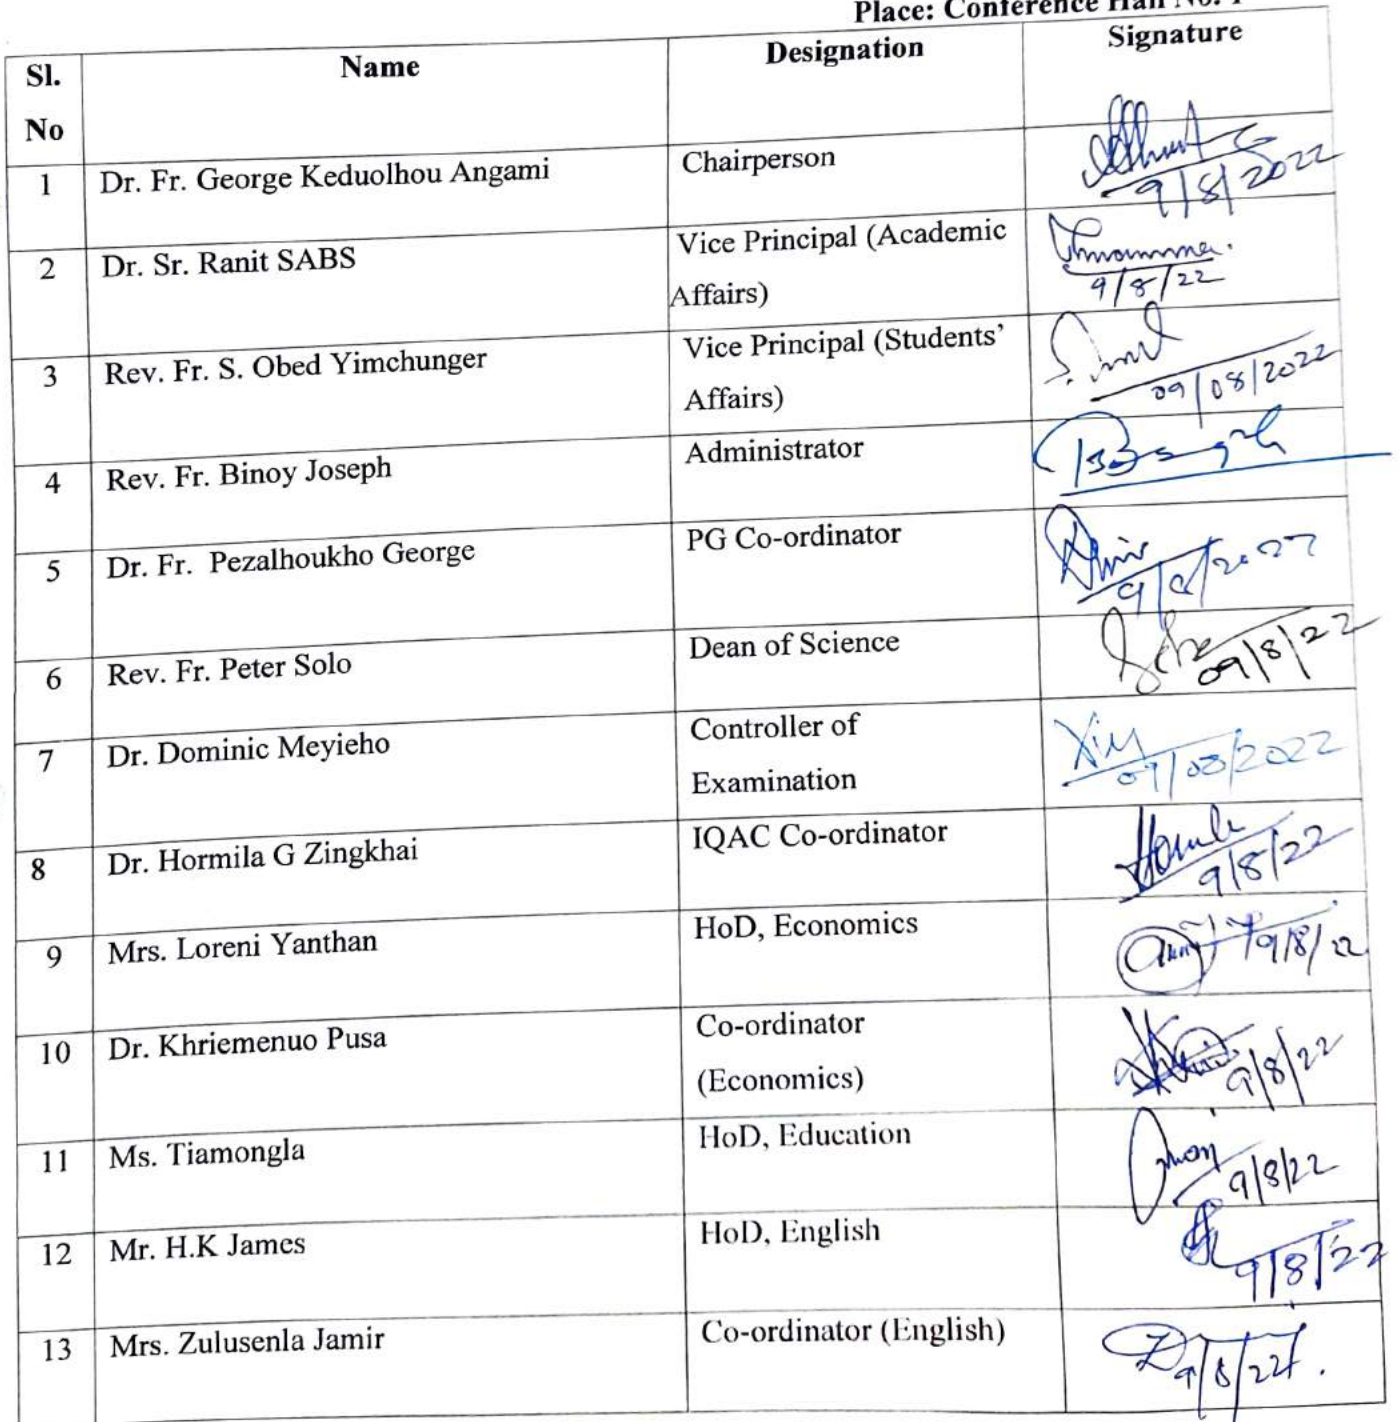 Place: Conference Hall No. 1
Sl. No Name Designation Signature
1 Dr. Fr. George Keduolhou Angami Chairperson
9/8/2022
2 Dr. Sr. Ranit SABS Vice Principal (Academic
Affairs)
9/8/22
3 Rev. Fr. S. Obed Yimchunger Vice Principal (Students'
Affairs)
09/08/2022
4 Rev. Fr. Binoy Joseph Administrator
5 Dr. Fr. Pezalhoukho George PG Co-ordinator
6 Rev. Fr. Peter Solo Dean of Science
09/8/22
7 Dr. Dominic Meyieho Controller of
Examination
09/08/2022
8 Dr. Hormila G Zingkhai IQAC Co-ordinator
9/8/22
9 Mrs. Loreni Yanthan HoD, Economics
9/8/22
10 Dr. Khriemenuo Pusa Co-ordinator
(Economics)
9/8/22
11 Ms. Tiamongla HoD, Education
9/8/22
12 Mr. H.K James HoD, English
9/8/22
13 Mrs. Zulusenla Jamir Co-ordinator (English)
9/8/22